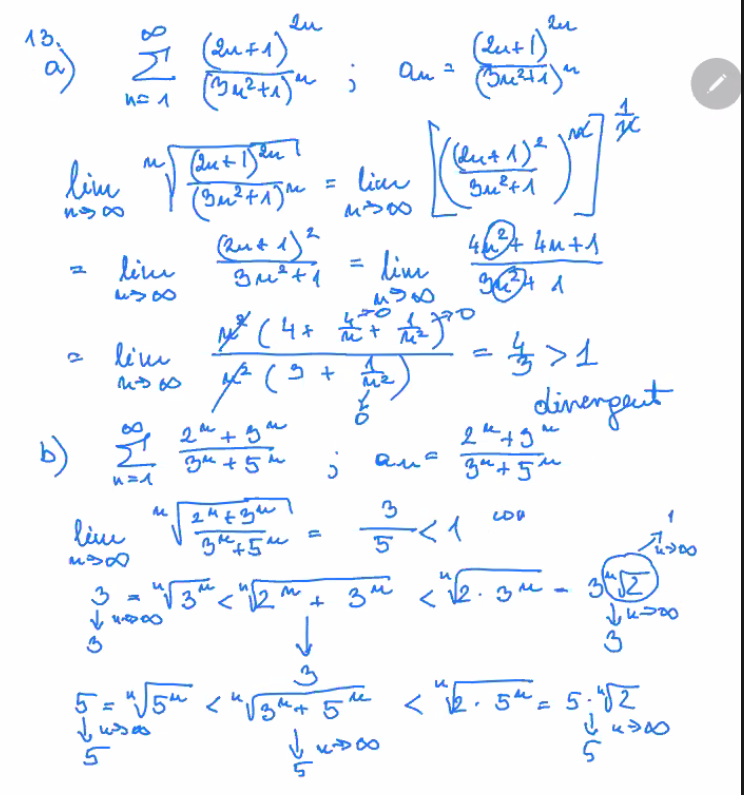 13.
a) ∑_{n=1}^{∞} (2n+1)^{2n} / (3n²+1)^n ; a_n = (2n+1)^{2n} / (3n²+1)^n
lim_{n→∞} ⁿ√((2n+1)^{2n} / (3n²+1)^n) = lim_{n→∞} [((2n+1)² / (3n²+1))^n]^{1/n}
= lim_{n→∞} (2n+1)² / (3n²+1) = lim_{n→∞} (4n² + 4n + 1) / (3n² + 1)
= lim_{n→∞} n² (4 + 4/n →0 + 1/n² →0) / n² (3 + 1/n² →0) = 4/3 > 1
divergent
b) ∑_{n=1}^{∞} (2^n + 3^n) / (3^n + 5^n) ; a_n = (2^n + 3^n) / (3^n + 5^n)
lim_{n→∞} ⁿ√((2^n + 3^n) / (3^n + 5^n)) = 3/5 < 1 con
1
n→∞
3 = ⁿ√(3^n) < ⁿ√(2^n + 3^n) < ⁿ√(2 · 3^n) = 3 ⁿ√2
↓ n→∞ ↓ ↓ n→∞
3 3 3
5 = ⁿ√(5^n) < ⁿ√(3^n + 5^n) < ⁿ√(2 · 5^n) = 5 · ⁿ√2
↓ n→∞ ↓ n→∞ ↓ n→∞
5 5 5